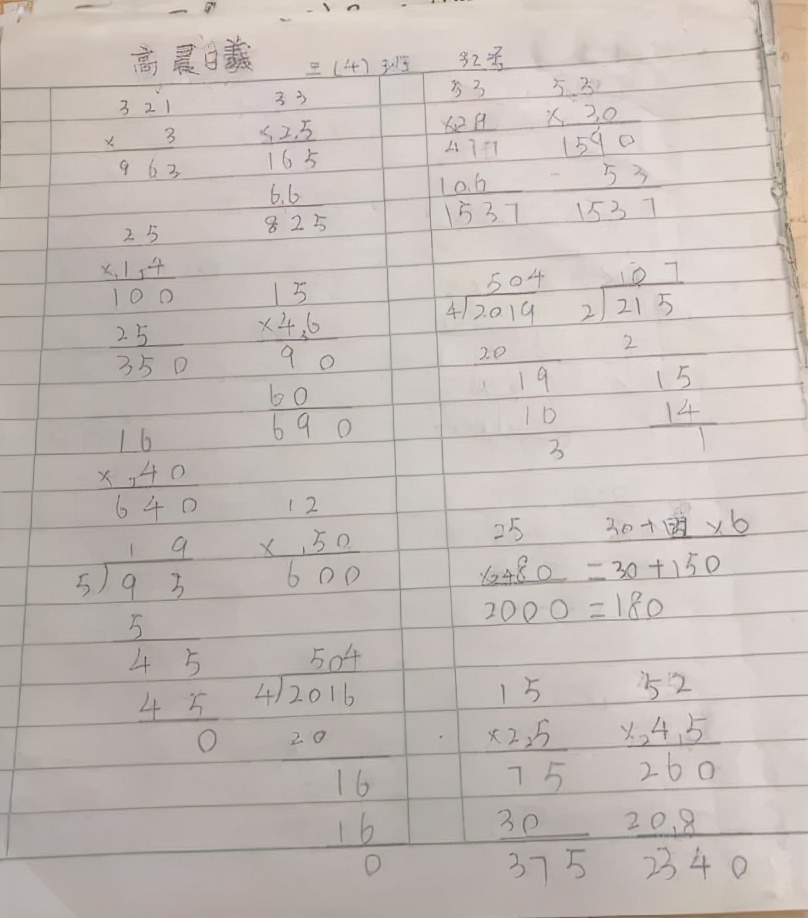 高晨日義 三(4)班 32号
321
× 3
963
33
×2.5
165
6.6
825
25
×1.4
100
25
350
15
×4.6
90
60
690
16
×40
640
12
×50
600
19
5)93
5
45
45
0
504
4)2016
20
16
16
0
53
×29
477
10.6
1537
5.3
× 30
1590
- 53
1537
504
4)2019
20
19
10
3
107
2)215
2
15
14
1
25
80
2000
×6
=30+150
=180
15
×2.5
75
30
375
52
×4.5
260
20.8
2340